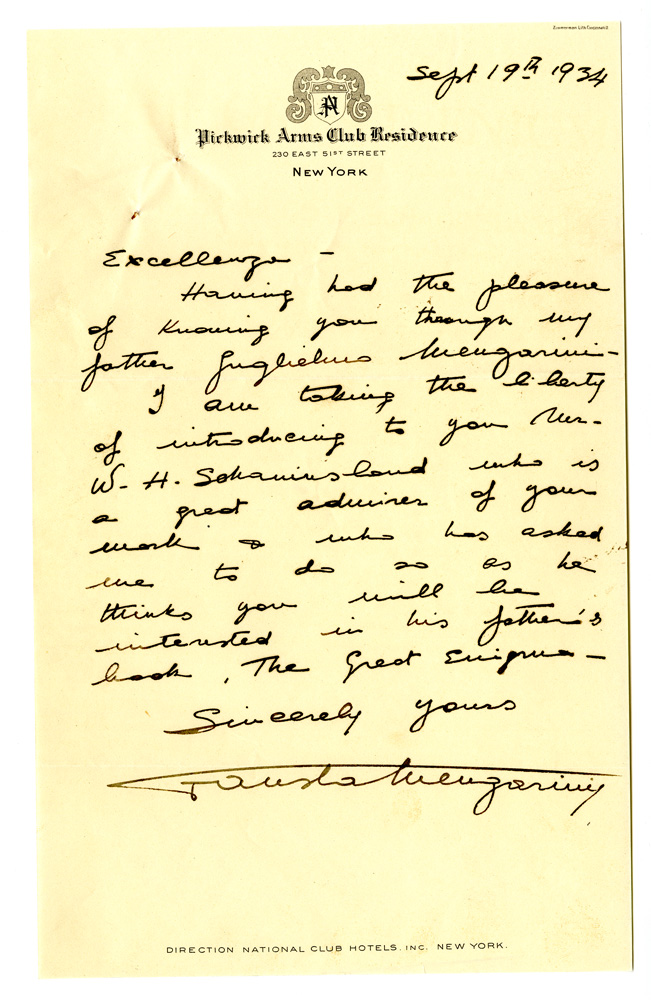 Sept 19th 1934
Pickwick Arms Club Residence
230 EAST 51ST STREET
NEW YORK
Excellenza –
Having had the pleasure
of knowing you through my
father Guglielmo Mengarini –
I am taking the liberty
of introducing to you Mr.
W. H. who is
a great admirer of your
work & who has asked
me to do so as he
thinks you will be
interested in his father's
book, The Great Enigma –
Sincerely yours
Fausta Mengarini
DIRECTION NATIONAL CLUB HOTELS. INC. NEW YORK.